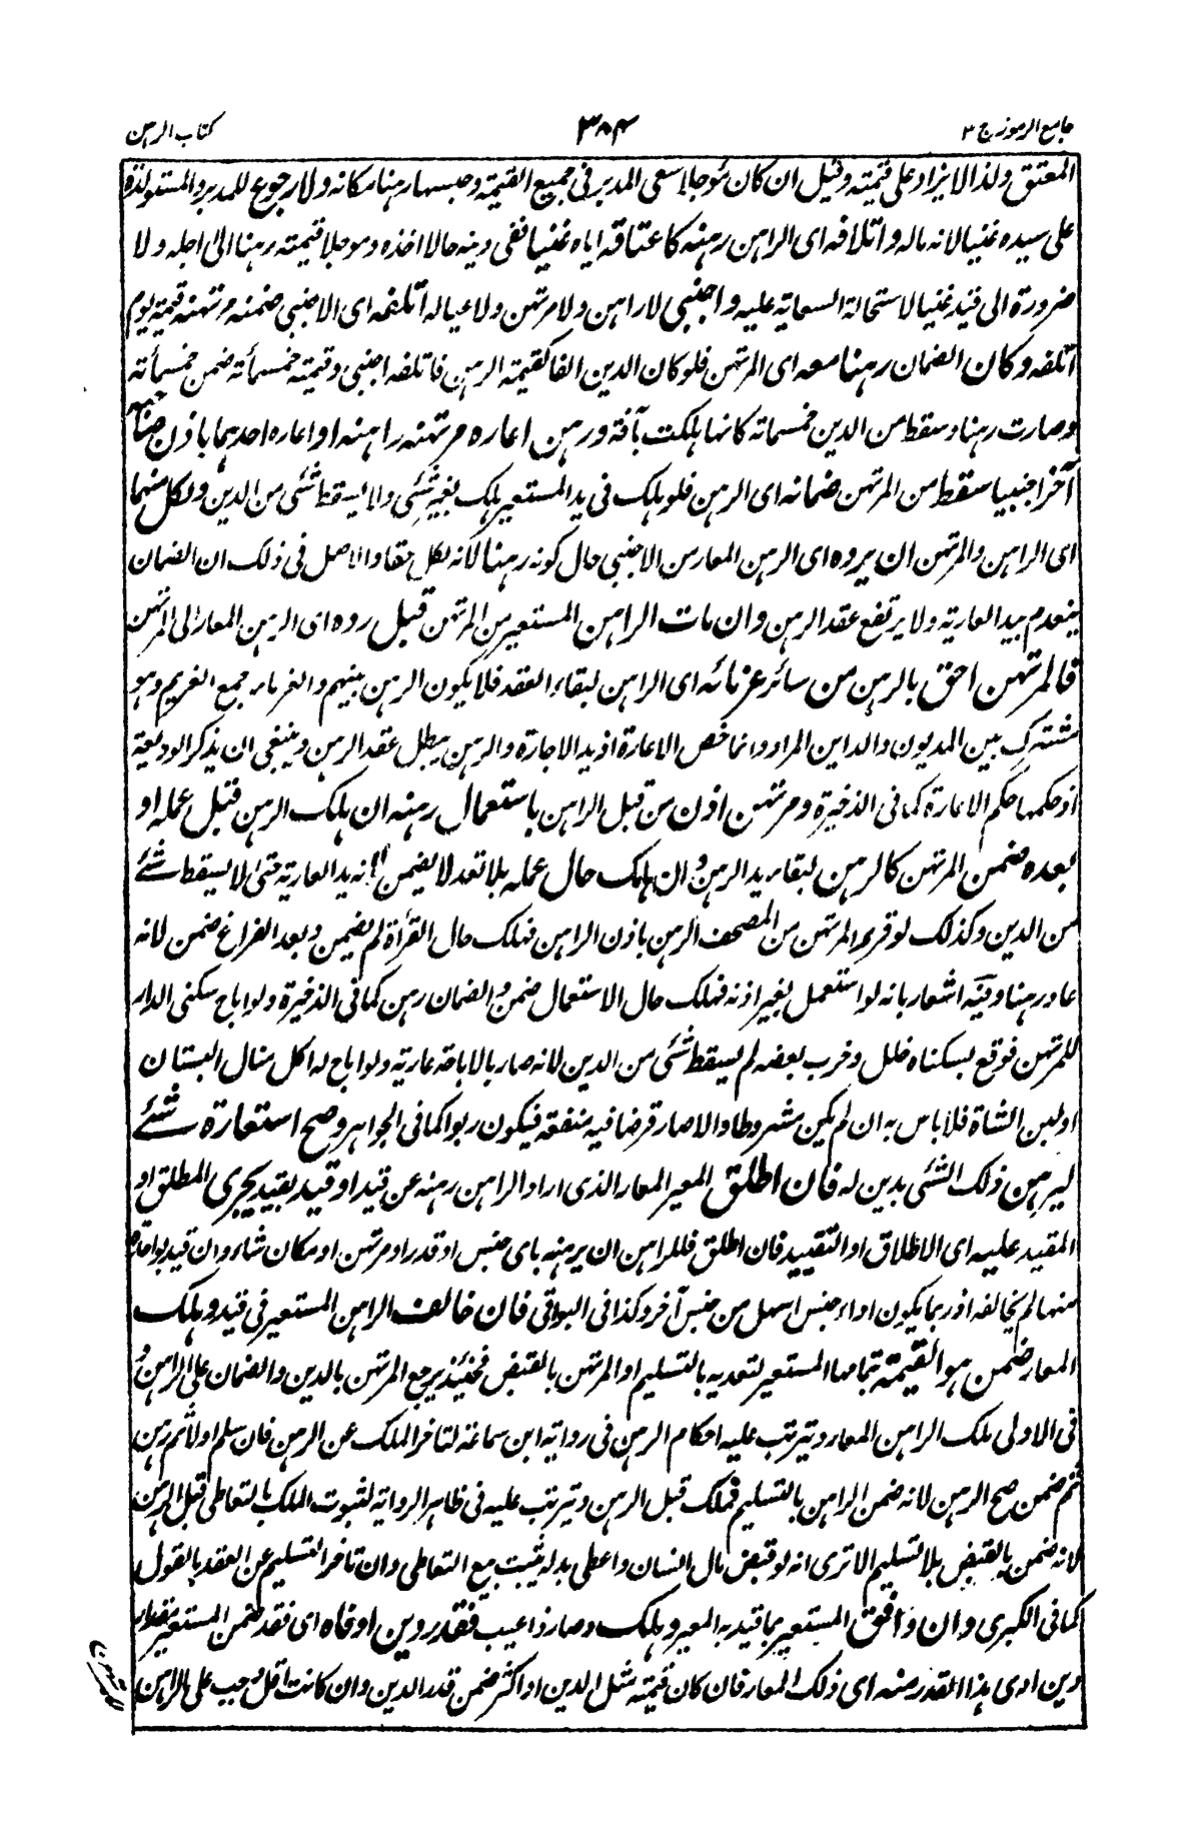 جامع الرموز ج ٣
٣٨٤
كتاب الرهن
المعتق ولذا لا يزاد على قيمته وقيل ان كان مؤجلا سعى المدبر فى جميع القيمة وحبسها رهنا مكانه ولا رجوع للمدبر والمستولدة
على سيده غنيا لانه ماله واتلافه اى الراهن رهنه كاعتاقه اياه غنيا ففى دينه حالا اخذه ومؤجلا قيمته رهنا الى اجله ولا
ضرورة الى قيد غنيا لاستحالة السعاية عليه واجنبى لا راهن ولا مرتهن ولا عياله اتلفه اى الاجنبى ضمنه مرتهنه قيمته يوم
اتلفه وكان الضمان رهنا معه اى المرتهن فلو كان الدين الفا كقيمة الرهن فاتلفه اجنبى وقيمته خمسمأة ضمن خمسمأته
وصارت رهنا وسقط من الدين خمسماته كانها هلكت بآفة ورهن اعاره مرتهنه راهنه او اعاره احدهما باذن صاحبه
آخر اجنبيا سقط من المرتهن ضمانه اى الرهن فلو هلك فى يد المستعير هلك بغير شئى ولا يسقط شئى من الدين ولكل منهما
اى الراهن والمرتهن ان يرده اى الرهن المعار من الاجنبى حال كونه رهنا لانه لكل حقا والاصل فى ذلك ان الضمان
ينعدم بيد العارية ولا يرتفع عقد الرهن وان مات الراهن المستعير من المرتهن قبل رده اى الرهن المعار الى المرتهن
فالمرتهن احق بالرهن من سائر غرمائه اى الراهن لبقاء العقد فلا يكون الرهن بينهم والغرماء جمع الغريم وهو
مشترك بين المديون والداين المراد وانما خص الاعارة اذ يد الاجارة والرهن يبطل عقد الرهن وينبغى ان يذكر الوديعة
اذ حكمها حكم الاعارة كما فى الذخيرة ومرتهن اذن من قبل الراهن باستعمال رهنه ان هلك الرهن قبل عمله او
بعده ضمن المرتهن كالرهن لبقاء يد الرهن وان هلك حال عمله بلا تعد لا يضمن لانه يد العارية حتى لا يسقط شئے
من الدين وكذلك لو قرء المرتهن من المصحف الرهن باذن الراهن فهلك حال القرأة لم يضمن وبعد الفراغ ضمن لانه
عاد رهنا وفيه اشعار بانه لو استعمل بغير اذنه فهلك حال الاستعمال ضمن والضمان رهن كما فى الذخيرة ولو اباح سكنى الدار
للمرتهن فوقع بسكناه خلل وخرب بعضه لم يسقط شئى من الدين لانه صار بالاباحة عارية ولو اباح له اكل منال البستان
او لبن الشاة فلا باس به ان لم يكن مشروطا والا صار قرضا فيه منفعة فيكون ربوا كما فى الجواهر وصح استعارة شئے
ليرهن ذلك الشئى بدين له فان اطلق المعير المعار الذى اراد الراهن رهنه عن قيد او قيد بقيد يجرى المطلق او
المقيد عليه اى الاطلاق او التقييد فان اطلق فللراهن ان يرهنه باى جنس او قدر او مرتهن او مكان شاء وان قيد بواحد
منها لم يخالفه اذ ربما يكون اداء جنس اسهل من جنس آخر وكذا فى البواقى فان خالف الراهن المستعير فى قيد وهلك
المعار ضمن هو القيمة بتمامها المستعير لتعديه بالتسليم او المرتهن بالقبض فحينئذ يرجع المرتهن بالدين والضمان على الراهن و
فى الاولى ملك الراهن المعار ويترتب عليه احكام الرهن فى رواية ابن سماعة لتاخر الملك عن الرهن فان سلم اولا ثم رهن
ثم ضمن صح الرهن لانه ضمن الراهن بالتسليم فملك قبل الرهن ويترتب عليه فى ظاهر الرواية لثبوت الملك بالتعاطى قبل الرهن
لانه ضمن بالقبض بلا تسليم الا ترى انه لو قبض مال انسان واعطى بدله يثبت بيع التعاطى وان تاخر التسليم عن العقد بالقول
كما فى الكبرى وان وافق المستعير بما قيد به المعير وهلك وصار ذا عيب فقدر دين اوفاه اى فقد ضمن المستعير مقدار
دين ادى هذا القدر منه اى ذلك المعار فان كان قيمته مثل الدين او اكثر ضمن قدر الدين وان كانت اقل وجب على الراهن